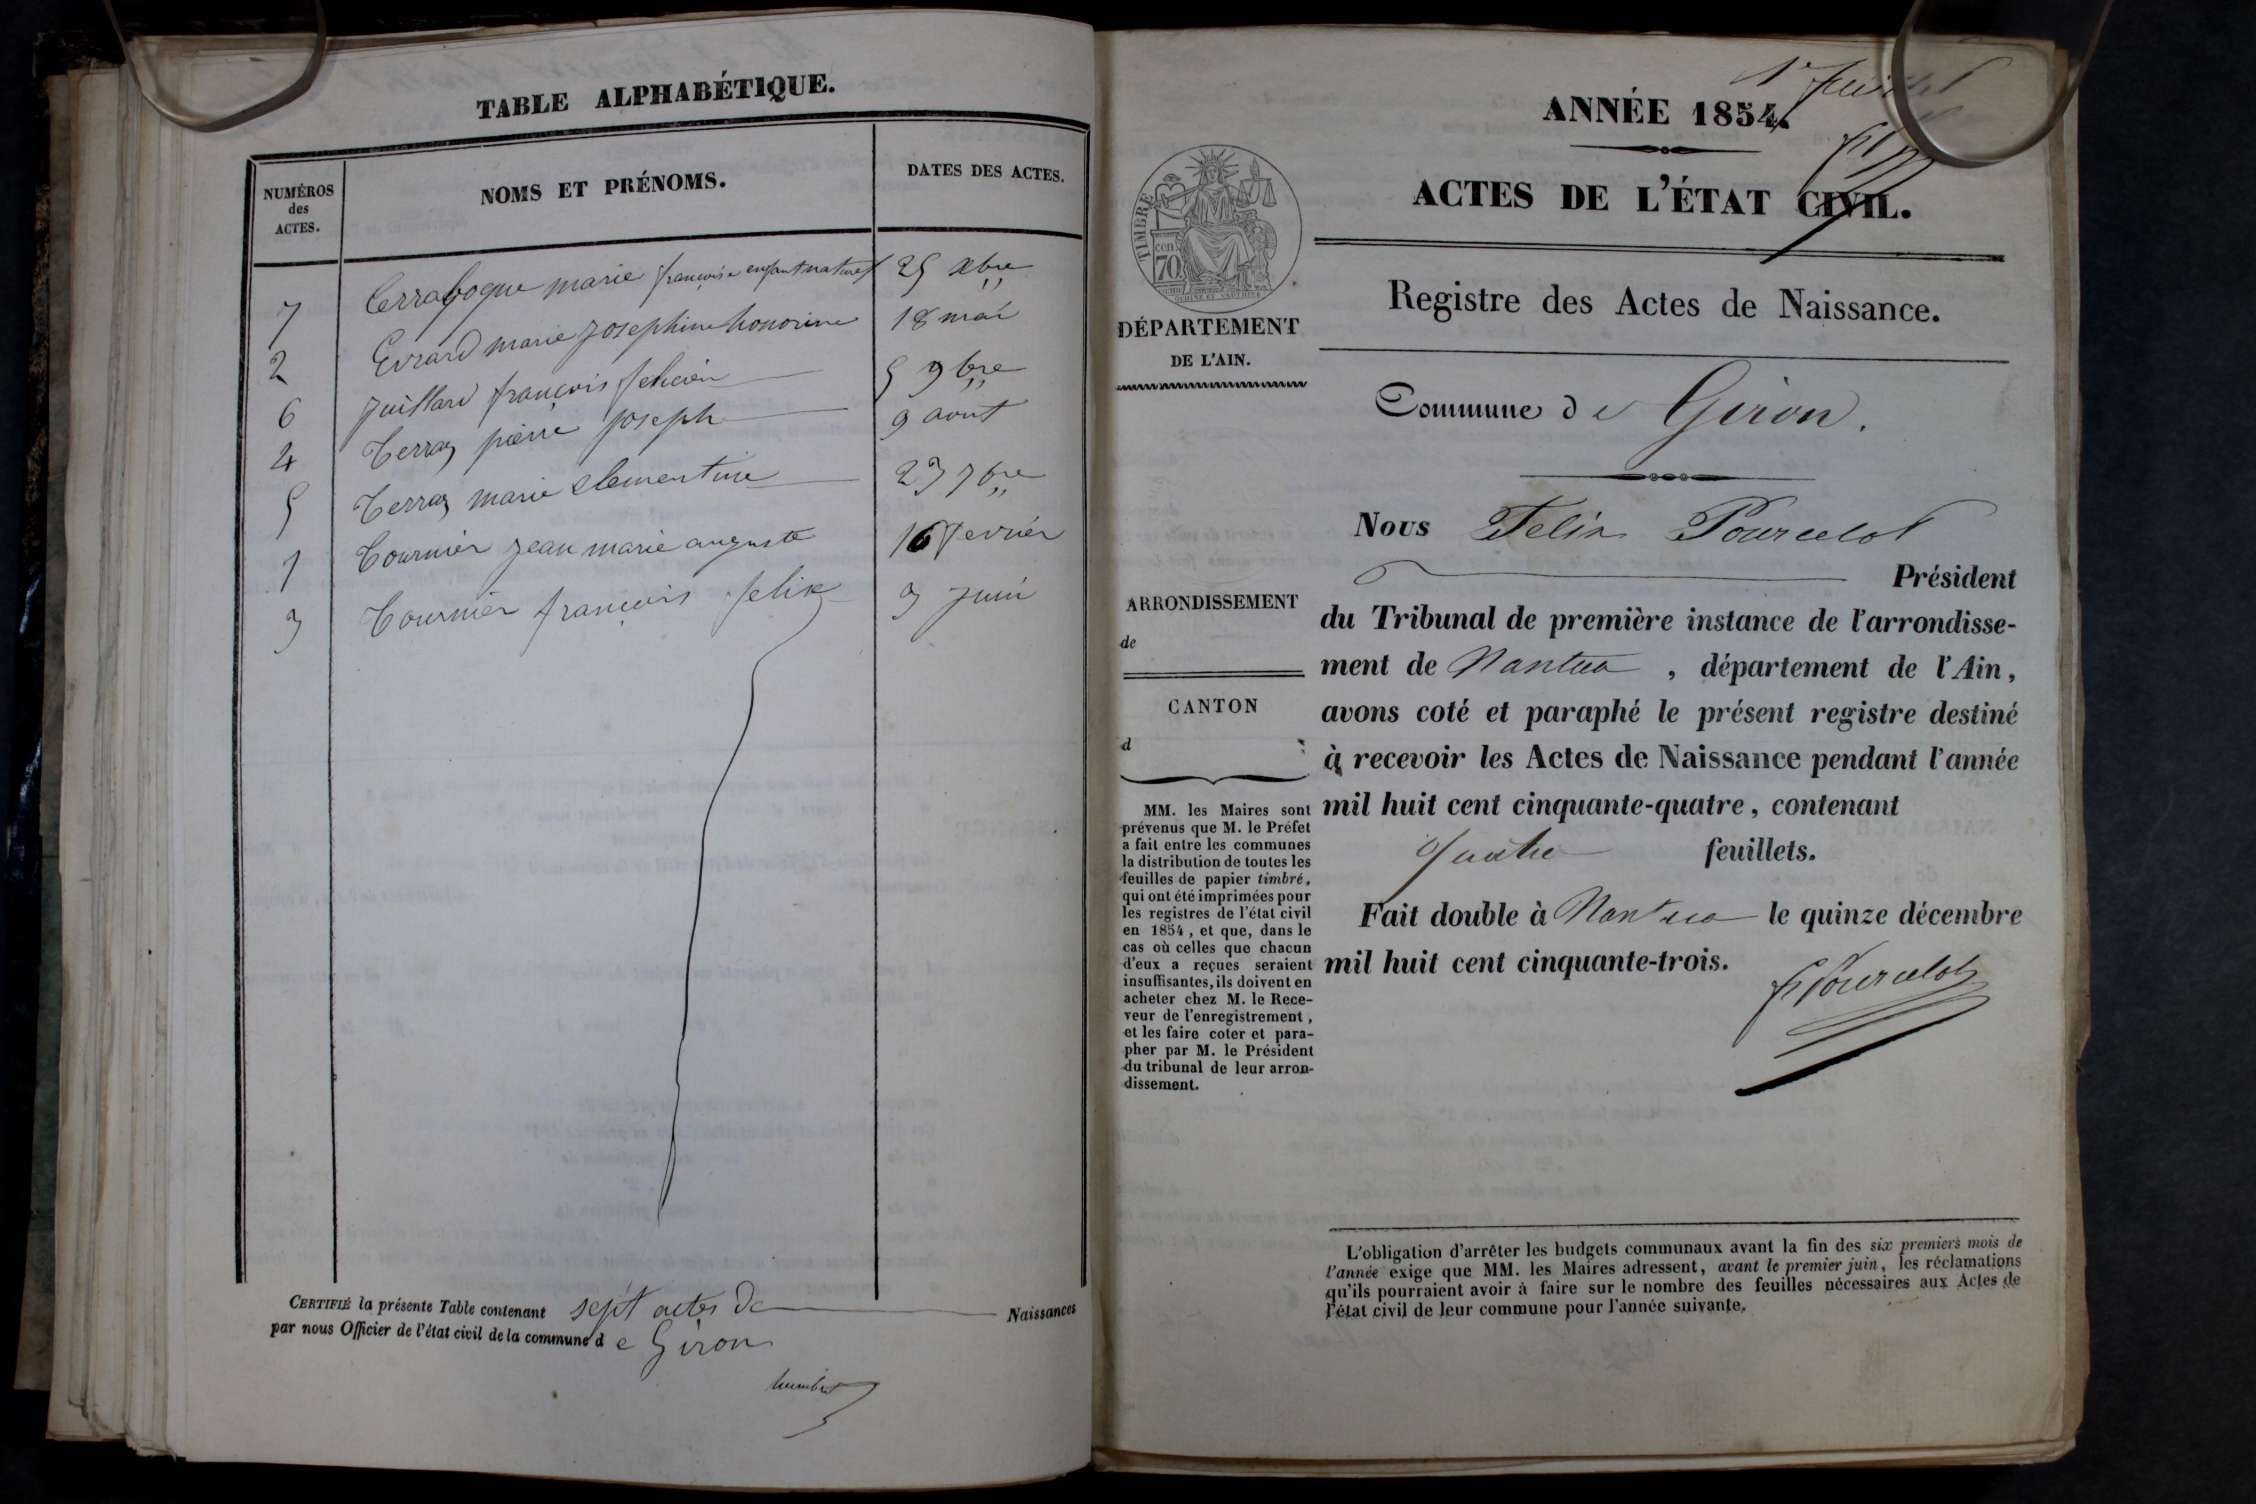 TABLE ALPHABÉTIQUE.
NUMÉROS
des
ACTES.
NOMS ET PRÉNOMS.
DATES DES ACTES.
7 marie françoise enfant naturel 25 xbre
2 Evrard marie josephine honorine 18 mai
6 Juillard françois felicien 5 9bre
4 Terraz pierre joseph 9 aout
5 Terraz marie clementine 23 7bre
1 Tournier jean marie auguste 16 fevrier
3 Tournier françois felix 3 juin
CERTIFIÉ la présente Table contenant sept actes de Naissances
par nous Officier de l'état civil de la commune d e Giron
1er feuillet
ANNÉE 1854.
ACTES DE L'ÉTAT CIVIL.
Registre des Actes de Naissance.
TIMBRE
cen
70
DÉPARTEMENT
DE L'AIN.
Commune de Giron.
Nous Felix Pourcelot
Président
du Tribunal de première instance de l'arrondisse-
ment de Nantua , département de l'Ain,
avons coté et paraphé le présent registre destiné
à recevoir les Actes de Naissance pendant l'année
mil huit cent cinquante-quatre, contenant
quatre feuillets.
Fait double à Nantua le quinze décembre
mil huit cent cinquante-trois.
F Pourcelot
ARRONDISSEMENT
de
CANTON
d
MM. les Maires sont
prévenus que M. le Préfet
a fait entre les communes
la distribution de toutes les
feuilles de papier timbré,
qui ont été imprimées pour
les registres de l'état civil
en 1854, et que, dans le
cas où celles que chacun
d'eux a reçues seraient
insuffisantes, ils doivent en
acheter chez M. le Rece-
veur de l'enregistrement,
et les faire coter et para-
pher par M. le Président
du tribunal de leur arron-
dissement.
L'obligation d'arrêter les budgets communaux avant la fin des six premiers mois de
l'année exige que MM. les Maires adressent, avant le premier juin, les réclamations
qu'ils pourraient avoir à faire sur le nombre des feuilles nécessaires aux Actes de
l'état civil de leur commune pour l'année suivante.